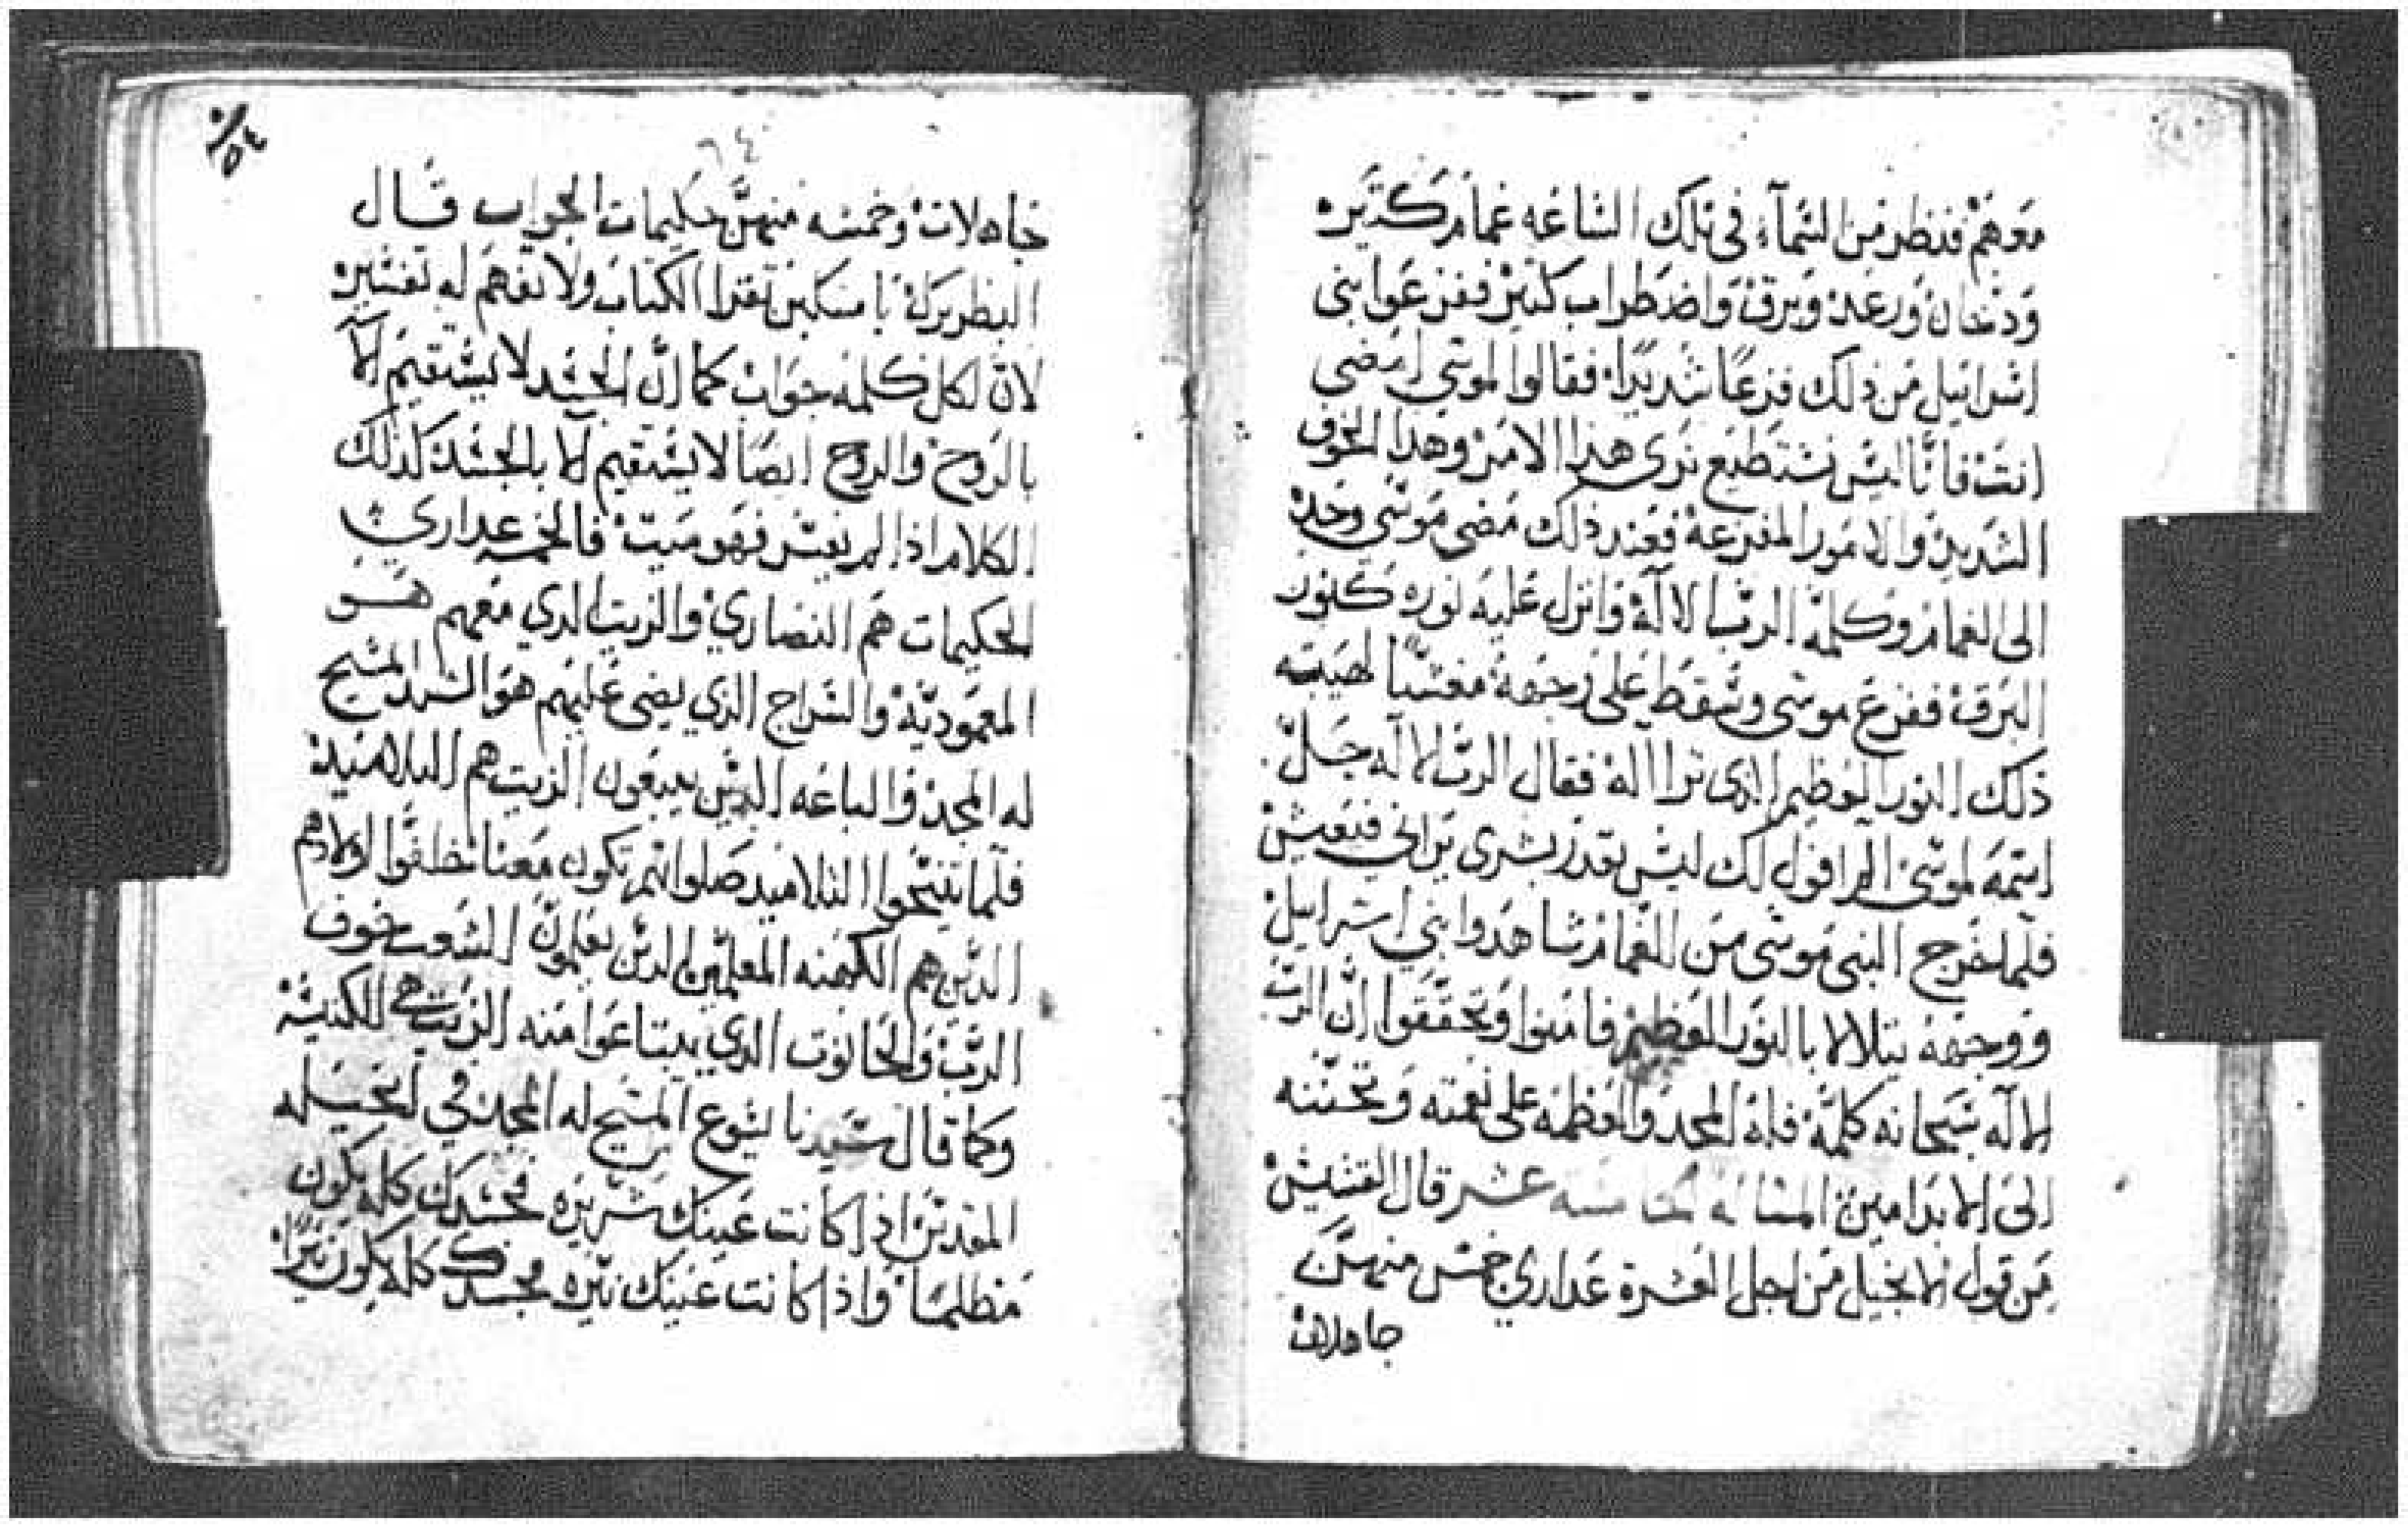 معهم فنظر من السماء في تلك الساعه غمام كتيره
ودخان ورعد وبرق واضطراب كتير ففزعوا بني
اسرائيل من ذلك فزعا شديدا فقالوا لموسي امضي
انت فانا ليس نستطيع نرى هذا الامر وهذا الخوف
الشديد والامور المفزعة فعند ذلك مضى موسى وحده
الى الغمام وكلمه الرب الاله وانزل عليه نوره كنور
البرق ففزع موسى وسقط على وجهه مغشيا لهيبه
ذلك النور العظيم الذى ترا اله فقال الرب الاله جل
اسمه لموسى الم اقول لك ليس يقدر بشرى يراني فيعيش
فلما خرج النبى موسى من الغمام شاهدوا بني اسراييل
ووجهه يتلالا بالنور العظيم فامنوا وتحققوا ان الرب
الاله سبحانه كلمه فله المجد والعظمه على نعمته وتحننه
الى الابد امين المساله عشر قال القسيس
من قول الانجيل من اجل العشرة عدارى خمس منهن
جاهلات
٦٤
جاهلات وخمسه منهن حكيمات الجواب قال
البطريرك يا مسكين تقرا الكتاب ولا تفهم له تفسير
لان لكل كلمه جواب كما ان الجسد لا يستقيم الا
بالروح والروح ايضا لا يستقيم الا بالجسد كذلك
الكلام اذا لم يفسر فهو ميت فالخمسه عدارى
الحكيمات هم النصارى والزيت الدي معهم هو
المعموديه والسراج الذي يضي عليهم هو السيد المسيح
له المجد والباعه الدين يبيعون الزيت هم التلاميد
فلما تنيحوا التلاميد صلواتهم تكون معنا خلفوا اولادهم
الدين هم الكهنه المعلمين الدين يعلمون الشعب خوف
الرب والحانوت الدي يبتاعوا منه الزيت هي الكنيسه
وكما قال سيدنا يسوع المسيح له المجد في انجيله
المقدس اذا كانت عينك شريره فجسدك كله يكون
مظلما واذا كانت عينك نيره فجسدك كله يكون نيرا